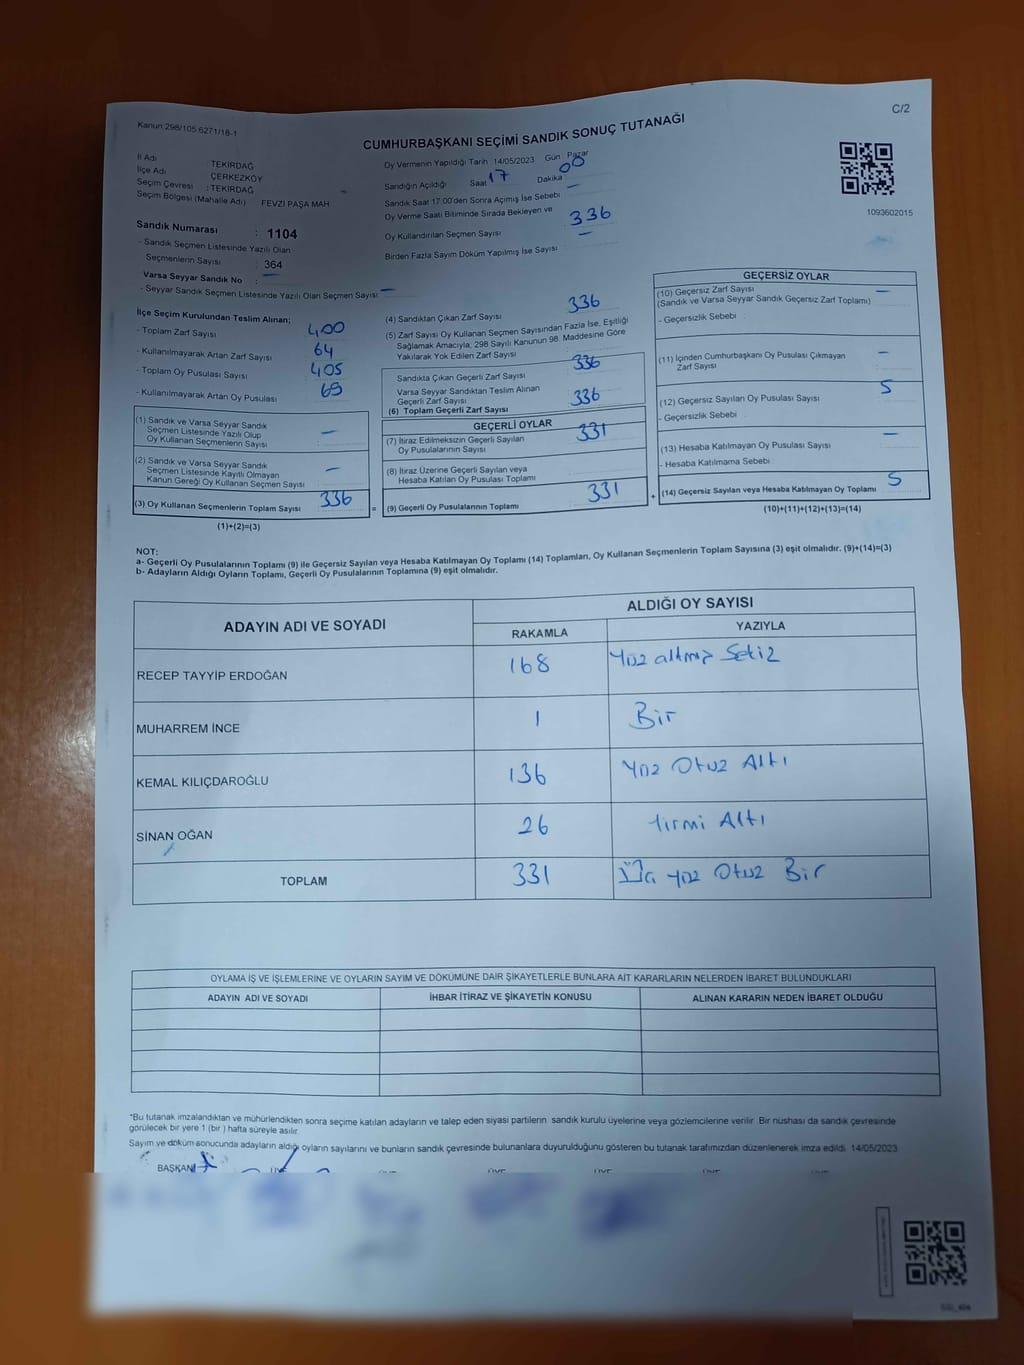 Kanun:298/105 6271/18-1
C/2
CUMHURBAŞKANI SEÇİMİ SANDIK SONUÇ TUTANAĞI
İl Adı TEKİRDAĞ
İlçe Adı ÇERKEZKÖY
Seçim Çevresi : TEKİRDAĞ
Seçim Bölgesi (Mahalle Adı) FEVZI PAŞA MAH
Sandık Numarası : 1104
- Sandık Seçmen Listesinde Yazılı Olan
Seçmenlerin Sayısı : 364
Varsa Seyyar Sandık No : —
- Seyyar Sandık Seçmen Listesinde Yazılı Olan Seçmen Sayısı : —
Oy Vermenin Yapıldığı Tarih 14/05/2023 Gün : Pazar
Sandığın Açıldığı Saat 17 Dakika 00
Sandık Saat 17:00'den Sonra Açımış İse Sebebi —
Oy Verme Saati Bitiminde Sırada Bekleyen ve
Oy Kullandırılan Seçmen Sayısı 336
Birden Fazla Sayım Döküm Yapılmış İse Sayısı —
1093602015
İlçe Seçim Kurulundan Teslim Alınan;
- Toplam Zarf Sayısı 400
- Kullanılmayarak Artan Zarf Sayısı 64
- Toplam Oy Pusulası Sayısı 405
- Kullanılmayarak Artan Oy Pusulası 69
(1) Sandık ve Varsa Seyyar Sandık
Seçmen Listesinde Yazılı Olup
Oy Kullanan Seçmenlerin Sayısı : —
(2) Sandık ve Varsa Seyyar Sandık
Seçmen Listesinde Kayıtlı Olmayan
Kanun Gereği Oy Kullanan Seçmen Sayısı : —
(3) Oy Kullanan Seçmenlerin Toplam Sayısı 336
(1)+(2)=(3)
=
(4) Sandıktan Çıkan Zarf Sayısı 336
(5) Zarf Sayısı Oy Kullanan Seçmen Sayısından Fazla İse, Eşitliği
Sağlamak Amacıyla; 298 Sayılı Kanunun 98. Maddesine Göre
Yakılarak Yok Edilen Zarf Sayısı
Sandıkta Çıkan Geçerli Zarf Sayısı 336
Varsa Seyyar Sandıktan Teslim Alınan
Geçerli Zarf Sayısı
(6) Toplam Geçerli Zarf Sayısı 336
GEÇERLİ OYLAR
(7) İtiraz Edilmeksizin Geçerli Sayılan
Oy Pusulalarının Sayısı 331
(8) İtiraz Üzerine Geçerli Sayılan veya
Hesaba Katılan Oy Pusulası Toplamı
(9) Geçerli Oy Pusulalarının Toplamı 331
+
GEÇERSİZ OYLAR
(10) Geçersiz Zarf Sayısı —
(Sandık ve Varsa Seyyar Sandık Geçersiz Zarf Toplamı)
- Geçersizlik Sebebi
(11) İçinden Cumhurbaşkanı Oy Pusulası Çıkmayan
Zarf Sayısı —
(12) Geçersiz Sayılan Oy Pusulası Sayısı 5
- Geçersizlik Sebebi
(13) Hesaba Katılmayan Oy Pusulası Sayısı —
- Hesaba Katılmama Sebebi
(14) Geçersiz Sayılan veya Hesaba Katılmayan Oy Toplamı 5
(10)+(11)+(12)+(13)=(14)
NOT:
a- Geçerli Oy Pusulalarının Toplamı (9) ile Geçersiz Sayılan veya Hesaba Katılmayan Oy Toplamı (14) Toplamları, Oy Kullanan Seçmenlerin Toplam Sayısına (3) eşit olmalıdır. (9)+(14)=(3)
b- Adayların Aldığı Oyların Toplamı, Geçerli Oy Pusulalarının Toplamına (9) eşit olmalıdır.
ADAYIN ADI VE SOYADI ALDIĞI OY SAYISI
RAKAMLA YAZIYLA
RECEP TAYYİP ERDOĞAN 168 Yüz altmış Sekiz
MUHARREM İNCE 1 Bir
KEMAL KILIÇDAROĞLU 136 Yüz Otuz Altı
SİNAN OĞAN 26 Yirmi Altı
TOPLAM 331 Üç yüz Otuz Bir
OYLAMA İŞ VE İŞLEMLERİNE VE OYLARIN SAYIM VE DÖKÜMÜNE DAİR ŞİKAYETLERLE BUNLARA AİT KARARLARIN NELERDEN İBARET BULUNDUKLARI
ADAYIN ADI VE SOYADI İHBAR İTİRAZ VE ŞİKAYETİN KONUSU ALINAN KARARIN NEDEN İBARET OLDUĞU
*Bu tutanak imzalandıktan ve mühürlendikten sonra seçime katılan adayların ve talep eden siyasi partilerin sandık kurulu üyelerine veya gözlemcilerine verilir. Bir nüshası da sandık çevresinde
görülecek bir yere 1 (bir ) hafta süreyle asılır.
Sayım ve döküm sonucunda adayların aldığı oyların sayılarını ve bunların sandık çevresinde bulunanlara duyurulduğunu gösteren bu tutanak tarafımızdan düzenlenerek imza edildi. 14/05/2023
BAŞKAN ÜYE ÜYE ÜYE ÜYE ÜYE ÜYE